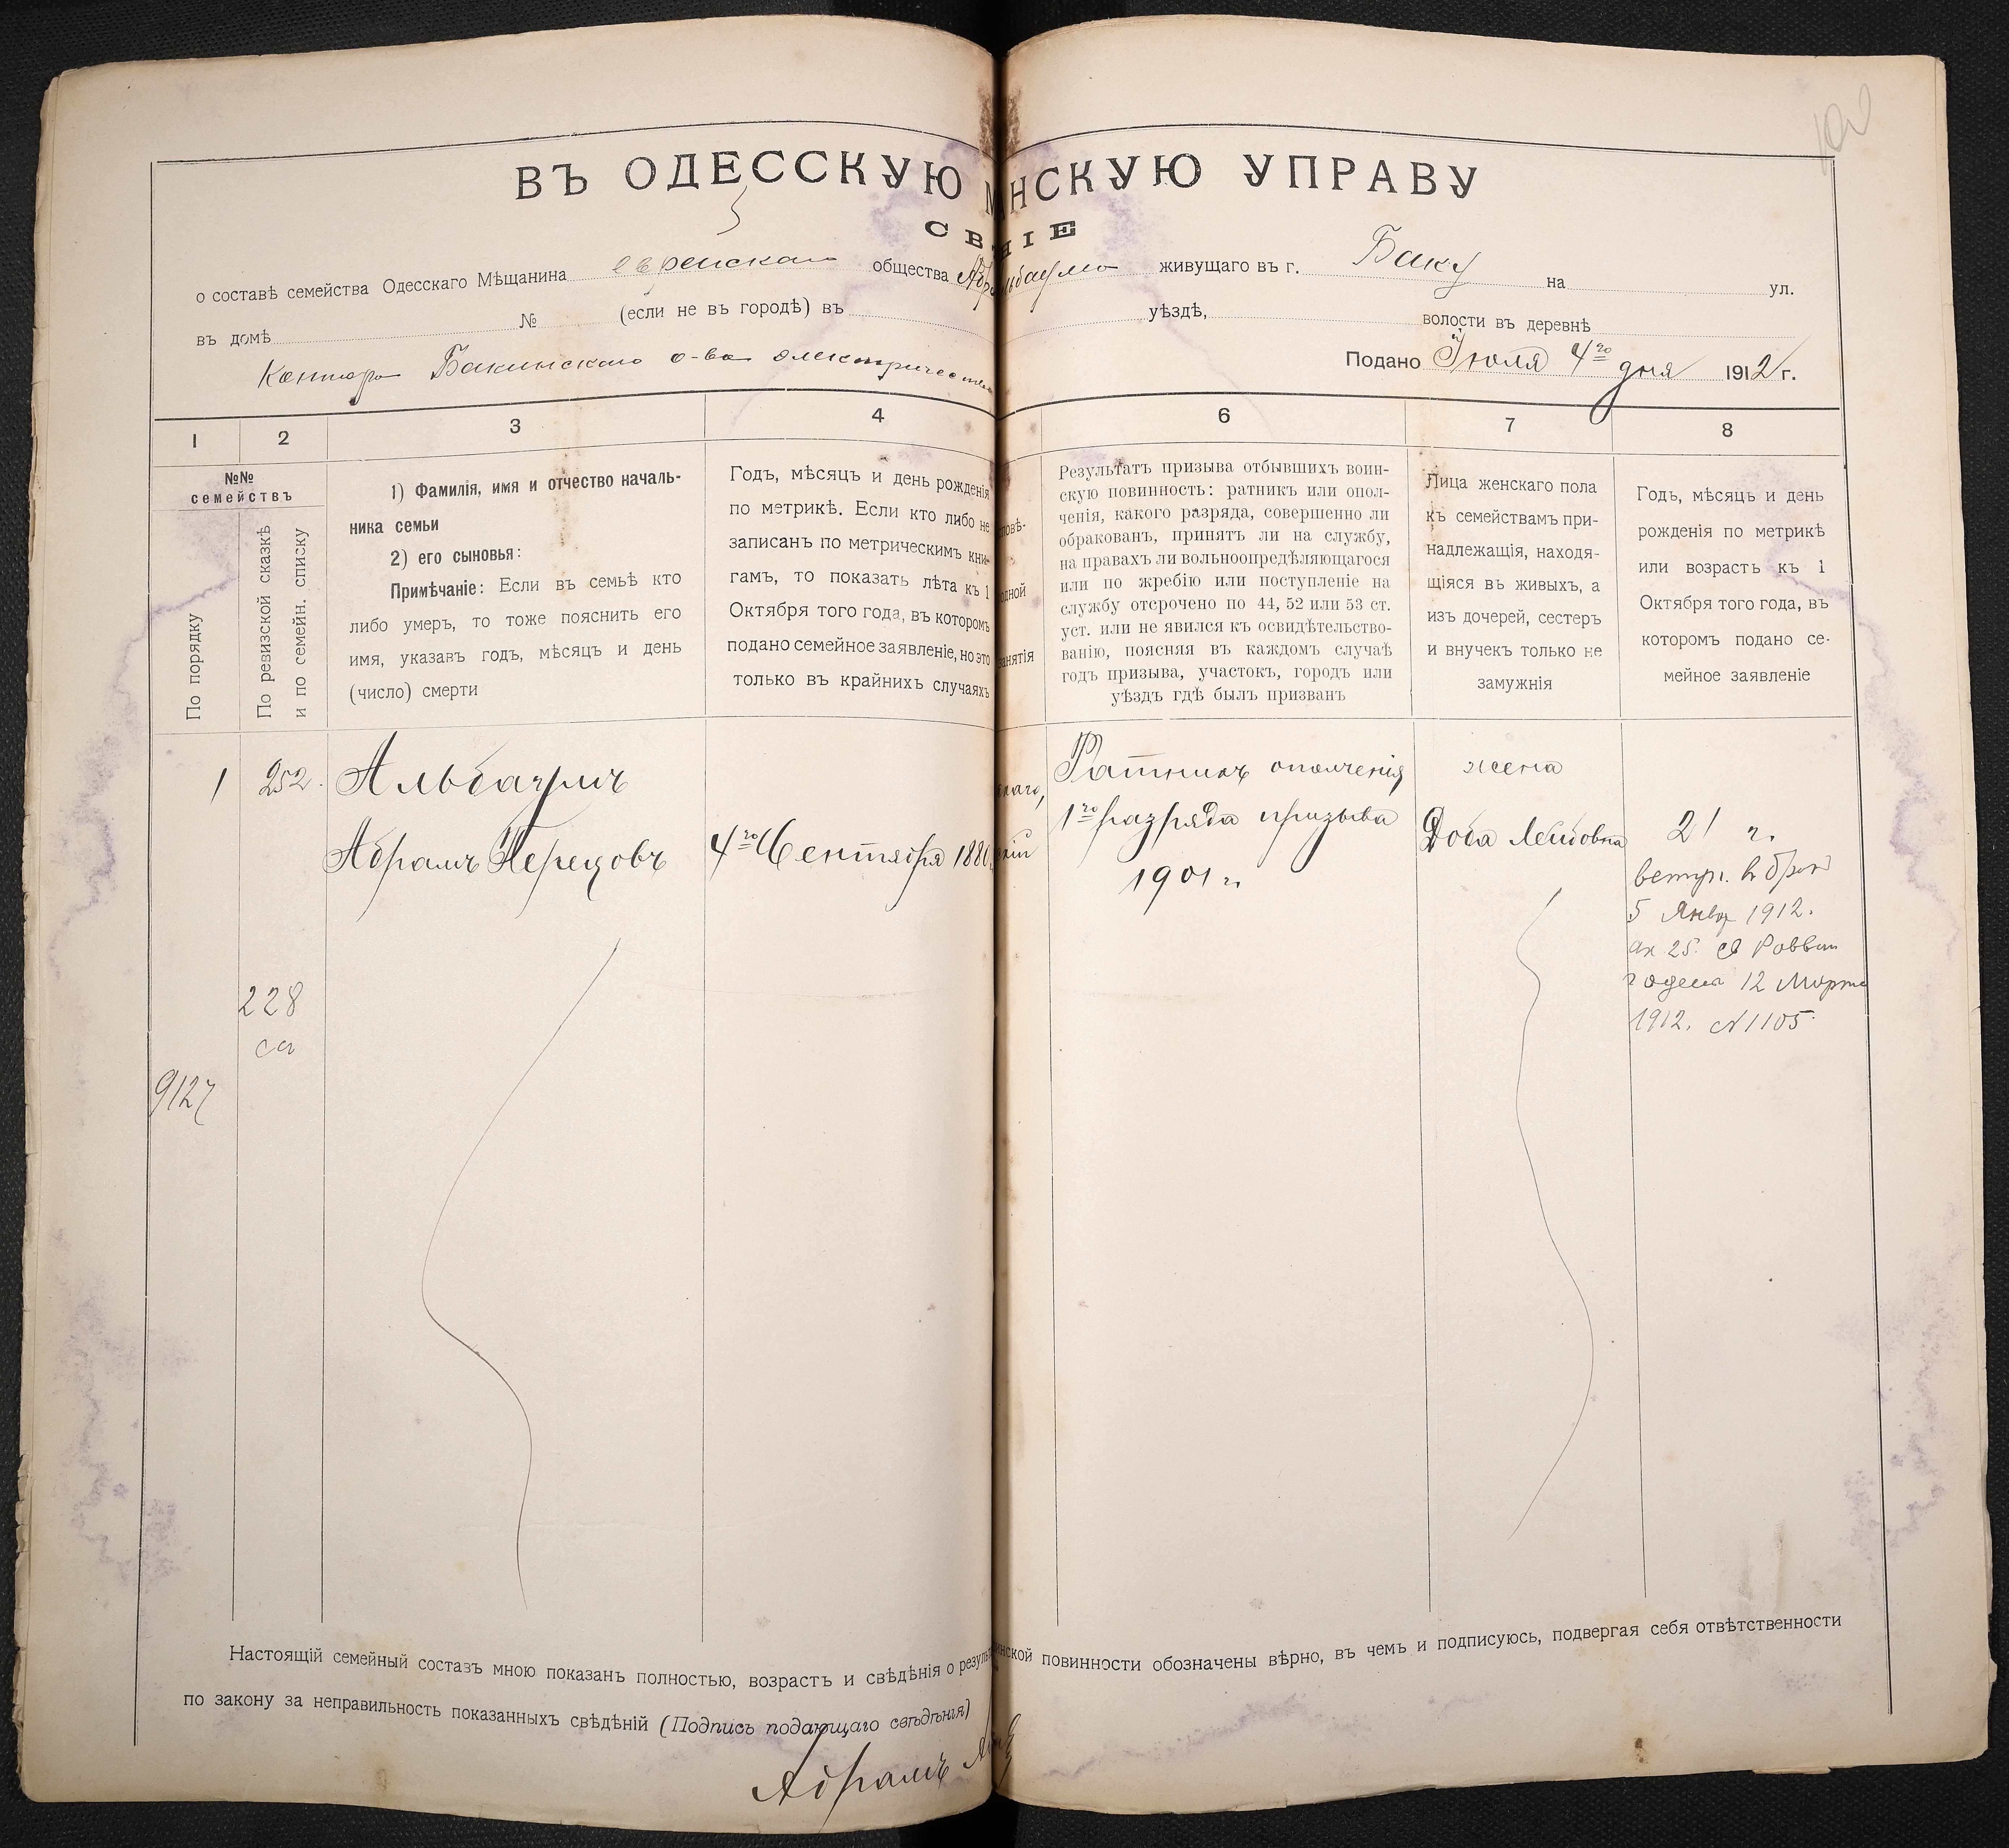 ВЪ ОДЕССКУЮ НСКУЮ УПРАВУ
СВ НІЕ
о составѣ семейства Одесскаго Мѣщанина еврейскаго общества живущаго въ г. Баку на ул.
въ домѣ № (если не въ городѣ) въ уѣздѣ, волости въ деревнѣ
Контора Бакинскаго о-ва электрическ
Подано Іюля 4го дня 1912 г.
1 2 3 4 6 7 8
№№
семействъ
По порядку
По ревизской сказкѣ
и по семейн. списку
1) Фамилія, имя и отчество началь-
ника семьи
2) его сыновья:
Примѣчаніе: Если въ семьѣ кто
либо умеръ, то тоже пояснить его
имя, указавъ годъ, мѣсяцъ и день
(число) смерти
Годъ, мѣсяцъ и день рожденія
по метрикѣ. Если кто либо не
записанъ по метрическимъ кни-
гамъ, то показать лѣта къ 1
Октября того года, въ которомъ
подано семейное заявленіе, но это
только въ крайнихъ случаяхъ
повѣ-
одной
занятія
Результатъ призыва отбывшихъ воин-
скую повинность: ратникъ или опол-
ченія, какого разряда, совершенно ли
обракованъ, принятъ ли на службу,
на правахъ ли вольноопредѣляющагося
или по жребію или поступленіе на
службу отсрочено по 44, 52 или 53 ст.
уст. или не явился къ освидѣтельство-
ванію, поясняя въ каждомъ случаѣ
годъ призыва, участокъ, городъ или
уѣздъ гдѣ былъ призванъ
Лица женскаго пола
къ семействамъ при-
надлежащія, находя-
щіяся въ живыхъ, а
изъ дочерей, сестеръ
и внучекъ только не
замужнія
Годъ, мѣсяцъ и день
рожденія по метрикѣ
или возрастъ къ 1
Октября того года, въ
которомъ подано се-
мейное заявленіе
1 252. Альбаумъ
Абрамъ Перецовъ
4го Сентября 1880
Ратникъ ополченія
1го разряда призыва
1901 г.
жена
Доба Лейбовна
21 г.
вступ. в брак
5 Янвр 1912.
ак 25. св Равви
12 Марта
1912. №1105
228
9127
Настоящій семейный составъ мною показанъ полностью, возрастъ и свѣдѣнія о результ инской повинности обозначены вѣрно, въ чемъ и подписуюсь, подвергая себя отвѣтственности
по закону за неправильность показанныхъ свѣдѣній (Подпись подающаго свѣдѣнія)
Абрамъ